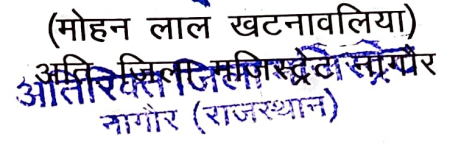 (मोहन लाल खटनावलिया)
अति जिला मजिस्ट्रेट नागौर
अतिरिक्त जिला
नागौर (राजस्थान)